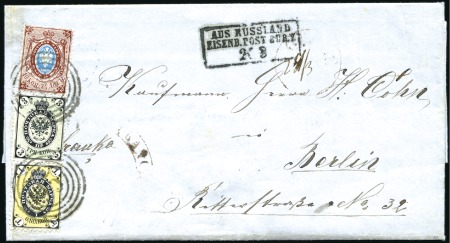 AUS RUSSLAND
EISENB. POST BUR. V
2 8
Kaufmann Herrn H. Cohn
in
Franko
Berlin
Ritterstraße No. 32